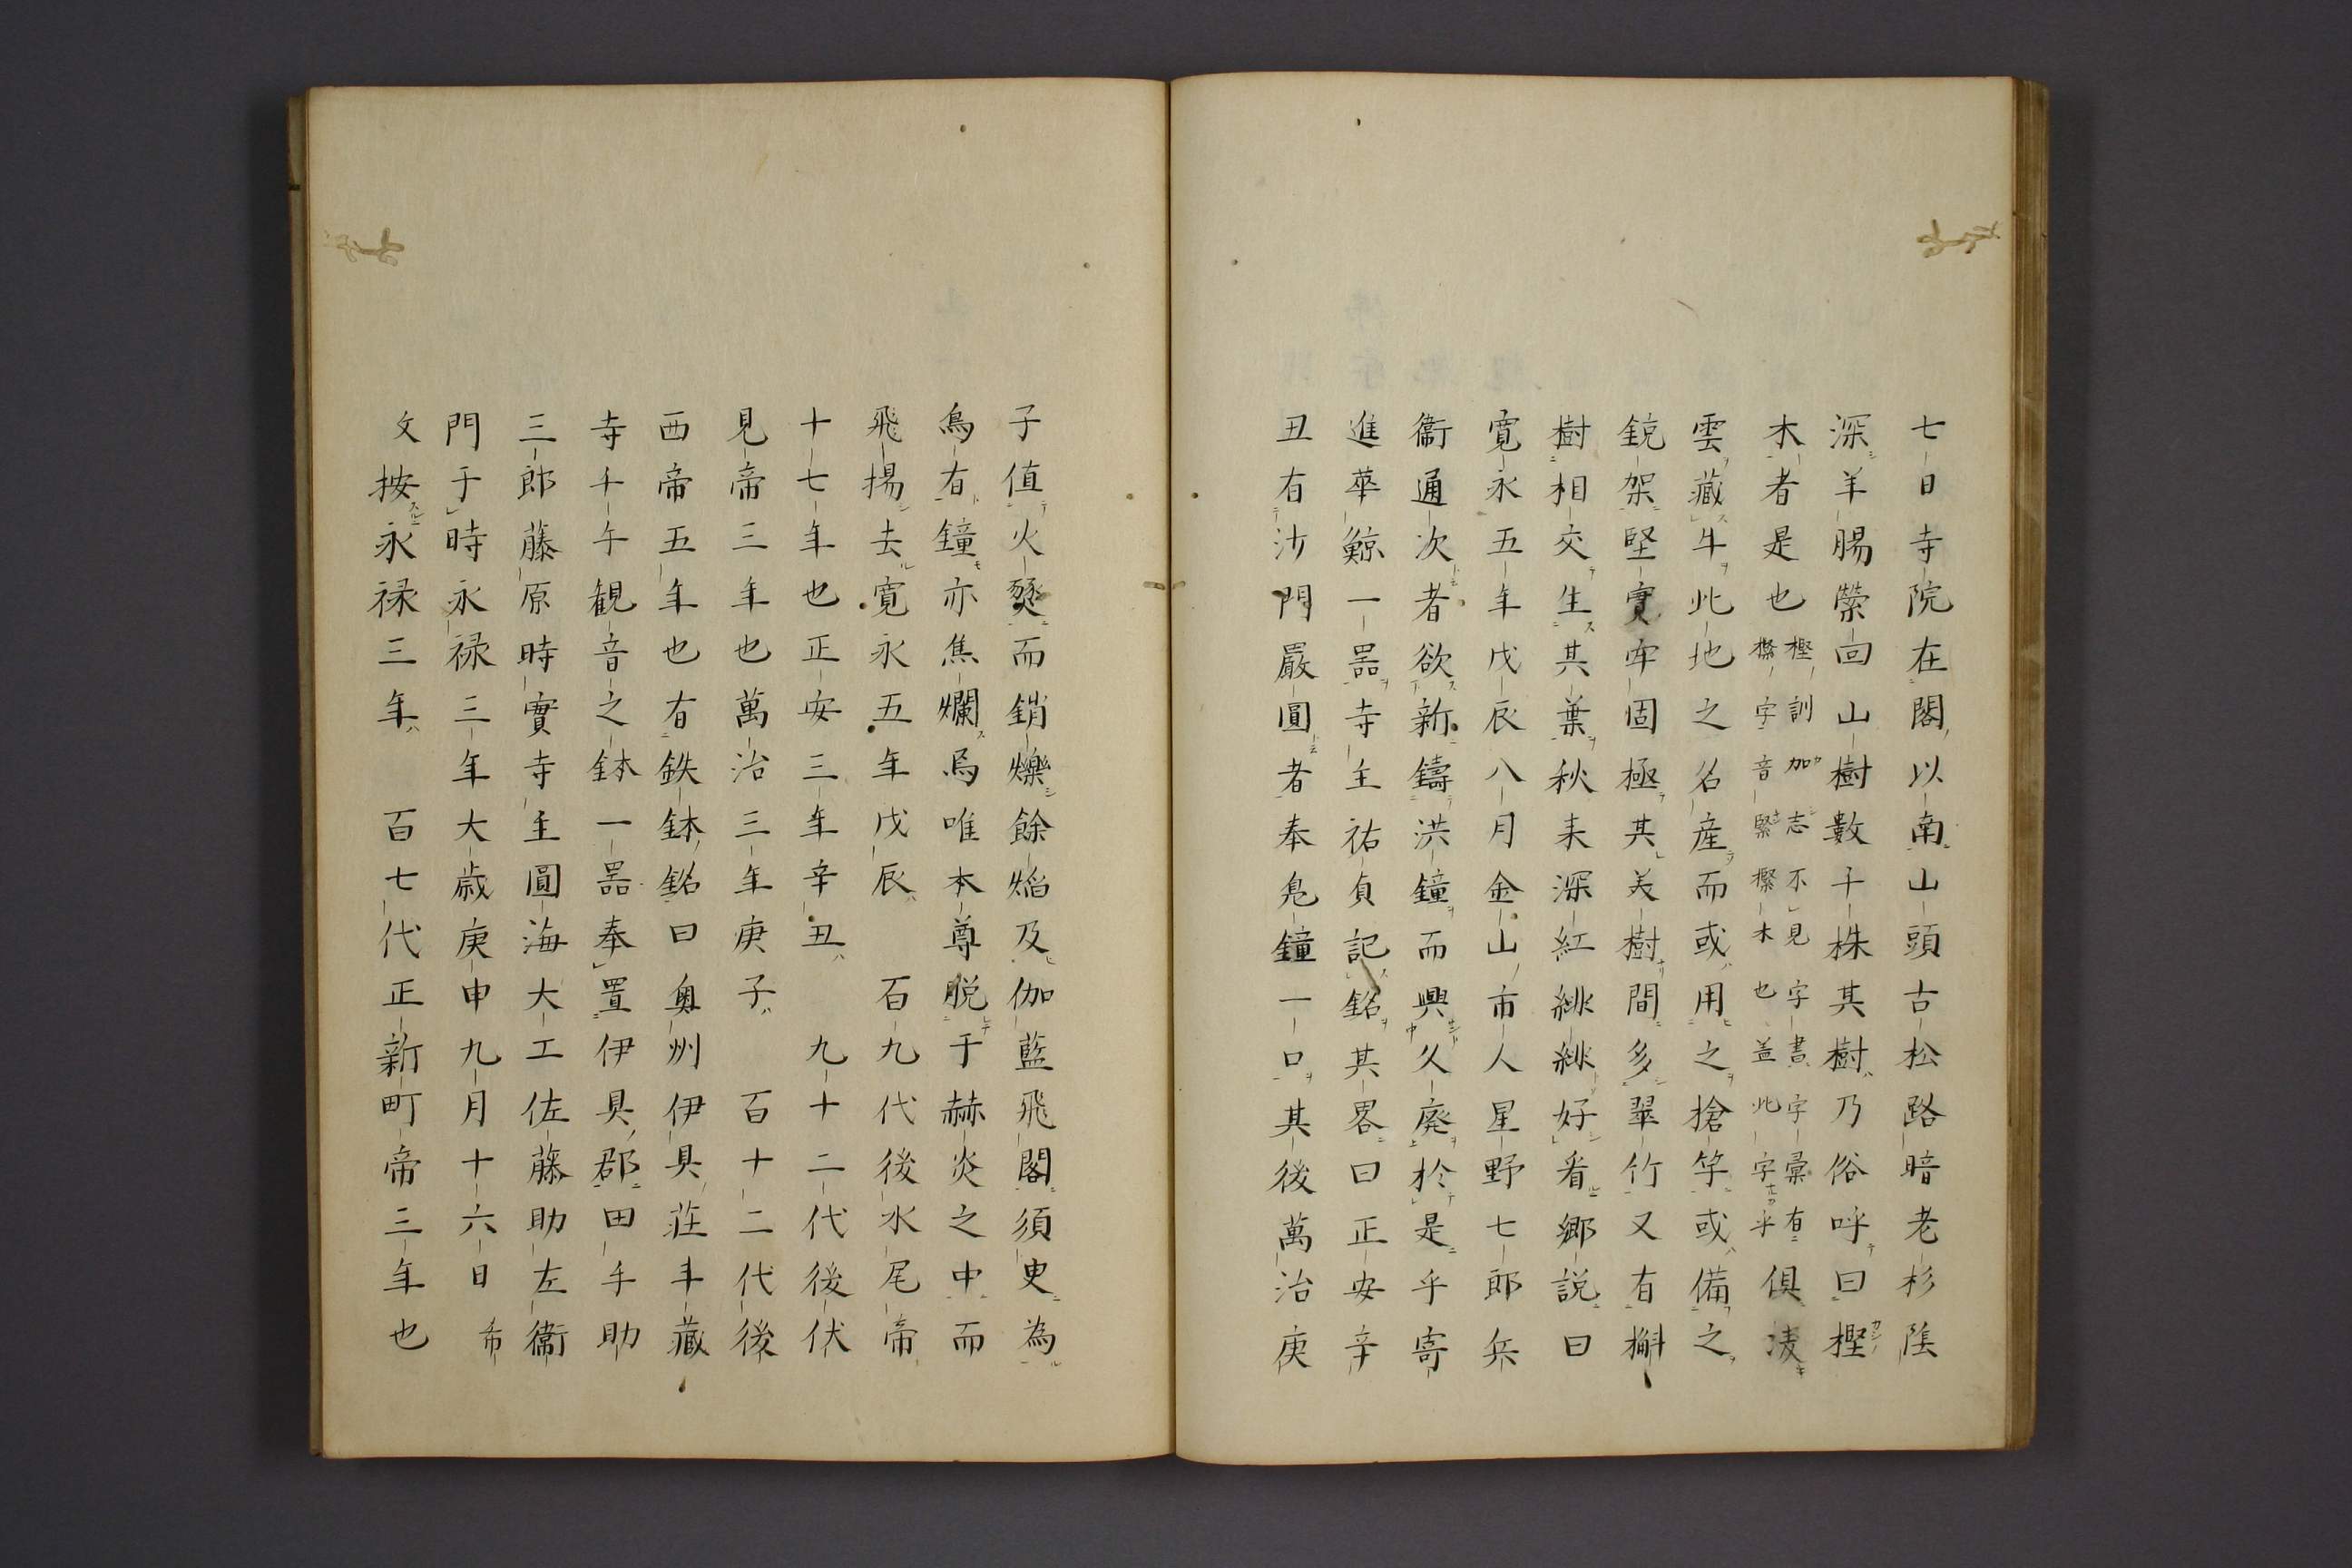 七日寺院在閣以南山頭古松路暗老杉陰
深羊腸縈回山樹數千株其樹乃俗呼曰樫
木者是也樫訓加志不見字書字彙有
檪字音緊檪木也蓋此字乎俱凌
雲藏牛此地之名産而或用之搶竿或備之
鏡架堅實牢固極其美樹間多翠竹又有槲
樹相交生其葉秋来深紅緋緋好看郷説曰
寛永五年戊辰八月金山市人星野七郎兵
衞通次者欲新鑄洪鐘而興久廢於是乎寄
進華鯨一噐寺主祐貞記銘其畧曰正安辛
丑有沙門嚴圓者奉鳬鐘一口其後萬治庚
子值火燹而銷爍餘焔及伽藍飛閣須臾為
烏有鐘亦焦爛焉唯本尊脱于赫炎之中而
飛揚去寛永五年戊辰 百九代後水尾帝
十七年也正安三年辛丑 九十二代後伏
見帝三年也萬治三年庚子 百十二代後
西帝五年也有鉄鉢銘曰奥州伊具荘斗藏
寺千午観音之鉢一噐奉置伊具郡田手助
三郎藤原時實寺主圓海大工佐藤助左衞
門于時永禄三年大歳庚申九月十六日 希
文按永禄三年 百七代正新町帝三年也